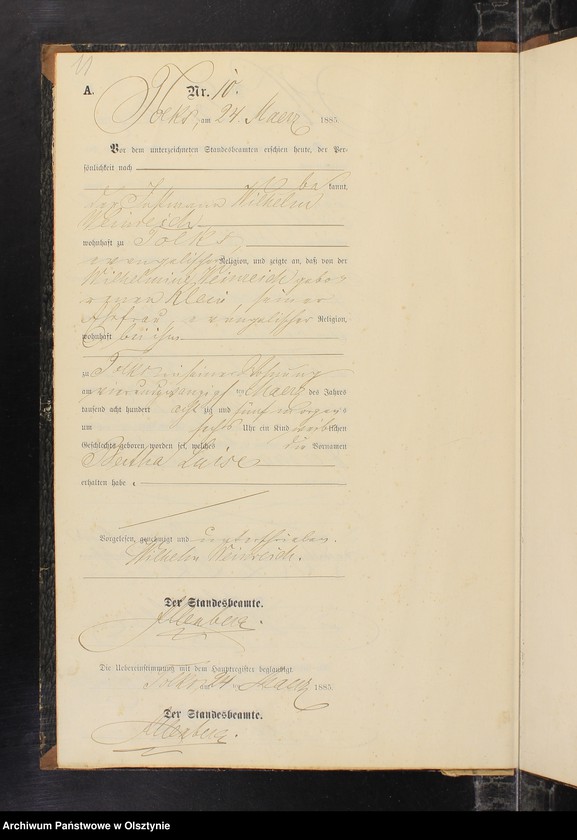 11
A.
Nr. 10.
Tolks, am 24 Maerz 1885
Vor dem unterzeichneten Standesbeamten erschien heute, der Per-
sönlichkeit nach
be kannt,
der Instmann Wilhelm
Weinreich
wohnhaft zu Tolks,
evangelischer Religion, und zeigte an, daß von der
Wilhelmine Weinreich gebo-
renen Klein, seiner
Ehefrau, evangelischer Religion,
wohnhaft bei ihm
zu Tolks in seiner Wohnung
am vierundzwanzigsten Maerz des Jahres
tausend acht hundert achtzig und fünf morgens
um sechs Uhr ein Kind weiblichen
Geschlechts geboren worden sei, welches die Vornamen
Bertha Luise
erhalten habe.
Vorgelesen, genehmigt und unterschrieben.
Wilhelm Weinreich.
Der Standesbeamte.
Die Uebereinstimmung mit dem Hauptregister beglaubigt.
Tolks, am 24 ten Maerz 1885
Der Standesbeamte.
Archiwum Państwowe w Olsztynie